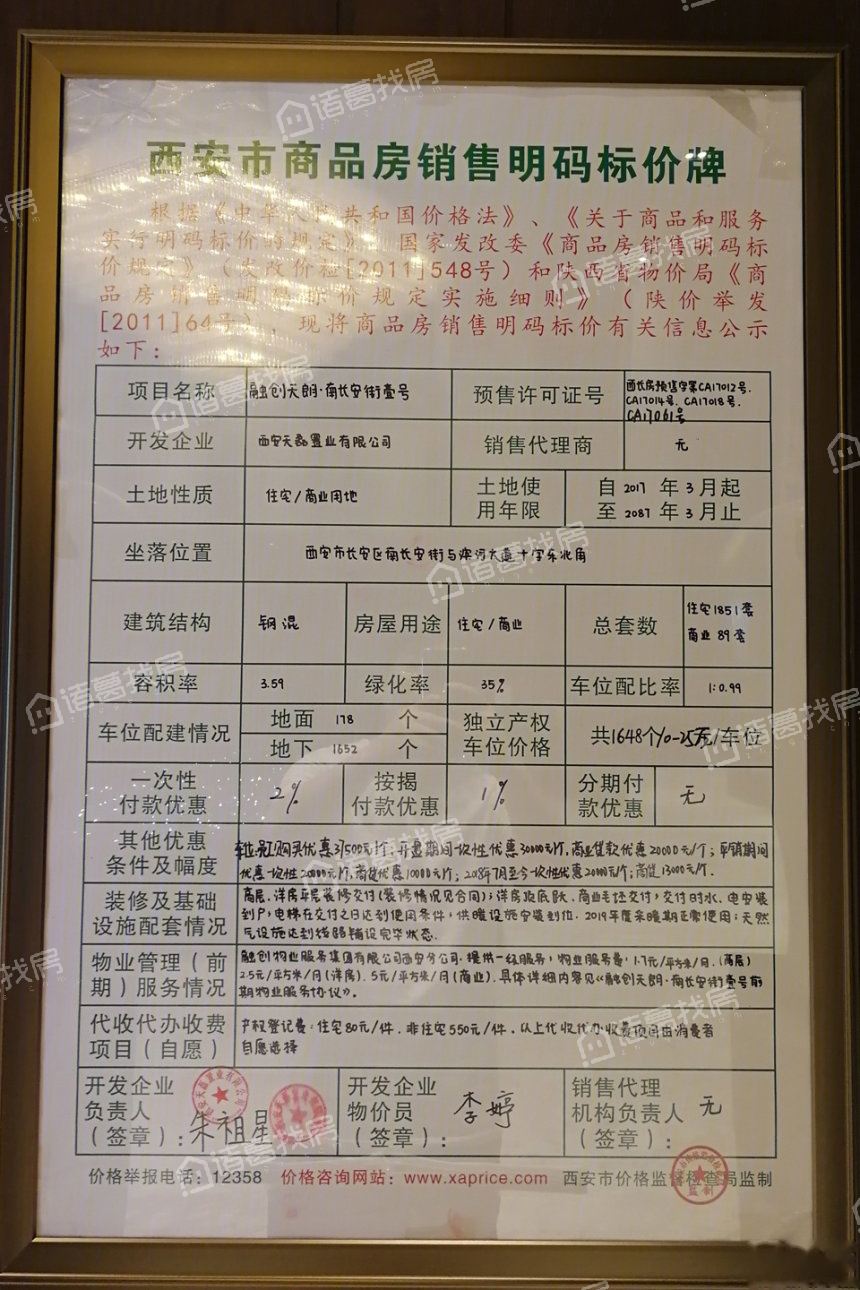 西安市商品房销售明码标价牌
根据《中华人民共和国价格法》、《关于商品和服务
实行明码标价的规定》、国家发改委《商品房销售明码标
价规定》（发改价检[2011]548号）和陕西省物价局《商
品房销售明码标价规定实施细则》（陕价举发
[2011]64号），现将商品房销售明码标价有关信息公示
如下：
项目名称 融创天朗·南长安街壹号 预售许可证号 西长房预售字第CA17012号、
CA17014号、CA17018号、
CA17061号
开发企业 西安天磊置业有限公司 销售代理商 无
土地性质 住宅/商业用地 土地使
用年限 自2017年3月起
至2087年3月止
坐落位置 西安市长安区南长安街与滨河大道十字东北角
建筑结构 钢混 房屋用途 住宅/商业 总套数 住宅1851套
商业89套
容积率 3.59 绿化率 35% 车位配比率 1:0.99
车位配建情况 地面 178 个
地下 1652 个
独立产权
车位价格 共1648个10-25万元/车位
一次性
付款优惠 2% 按揭
付款优惠 1% 分期付
款优惠 无
其他优惠
条件及幅度
购买优惠37500元/个；开盘期间一次性优惠30000元/个，商业贷款优惠20000元/个；平销期间
优惠一次性20000元/个，商贷优惠10000元/个；2018年7月至今一次性优惠20000元/个；商贷13000元/个.
装修及基础
设施配套情况
高层、洋房平层装修交付（装修情况见合同）；洋房顶底跃、商业毛坯交付，交付时水、电安装
到户；电梯在交付之日达到使用条件，供暖设施安装到位，2019年度采暖期正常使用；天然
气设施达到线路铺设完毕状态.
物业管理（前
期）服务情况
融创物业服务集团有限公司西安分公司，提供一级服务，物业服务费：1.7元/平方米/月（高层）
2.5元/平方米/月（洋房）、5元/平方米/月（商业）、具体详细内容见《融创天朗·南长安街壹号前
期物业服务协议》。
代收代办收费
项目（自愿）
产权登记费：住宅80元/件、非住宅550元/件，以上代收代办收费项目由消费者
自愿选择
开发企业
负责人
（签章）：朱祖星
开发企业
物价员
（签章）：李婷
销售代理
机构负责人
（签章）：无
价格举报电话：12358 价格咨询网站：www.xaprice.com 西安市价格监督检查局监制
诸葛找房